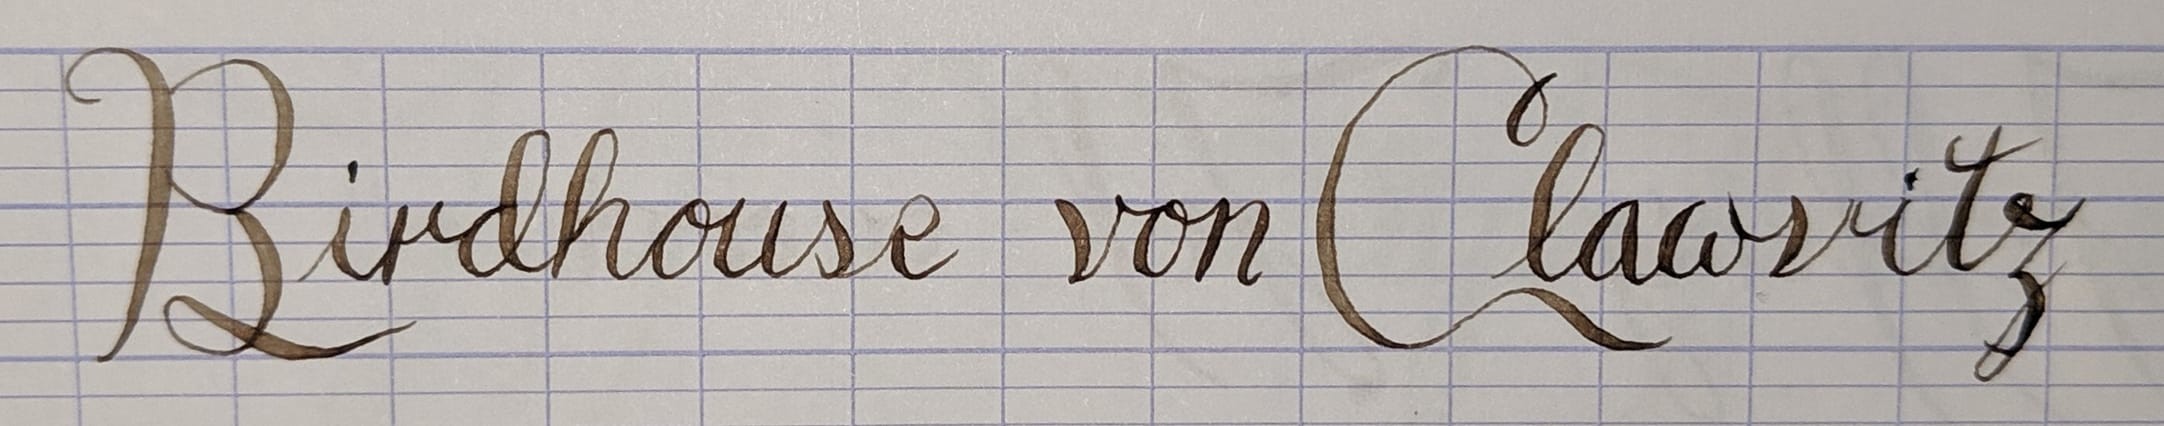 Birdhouse von Clawvitz